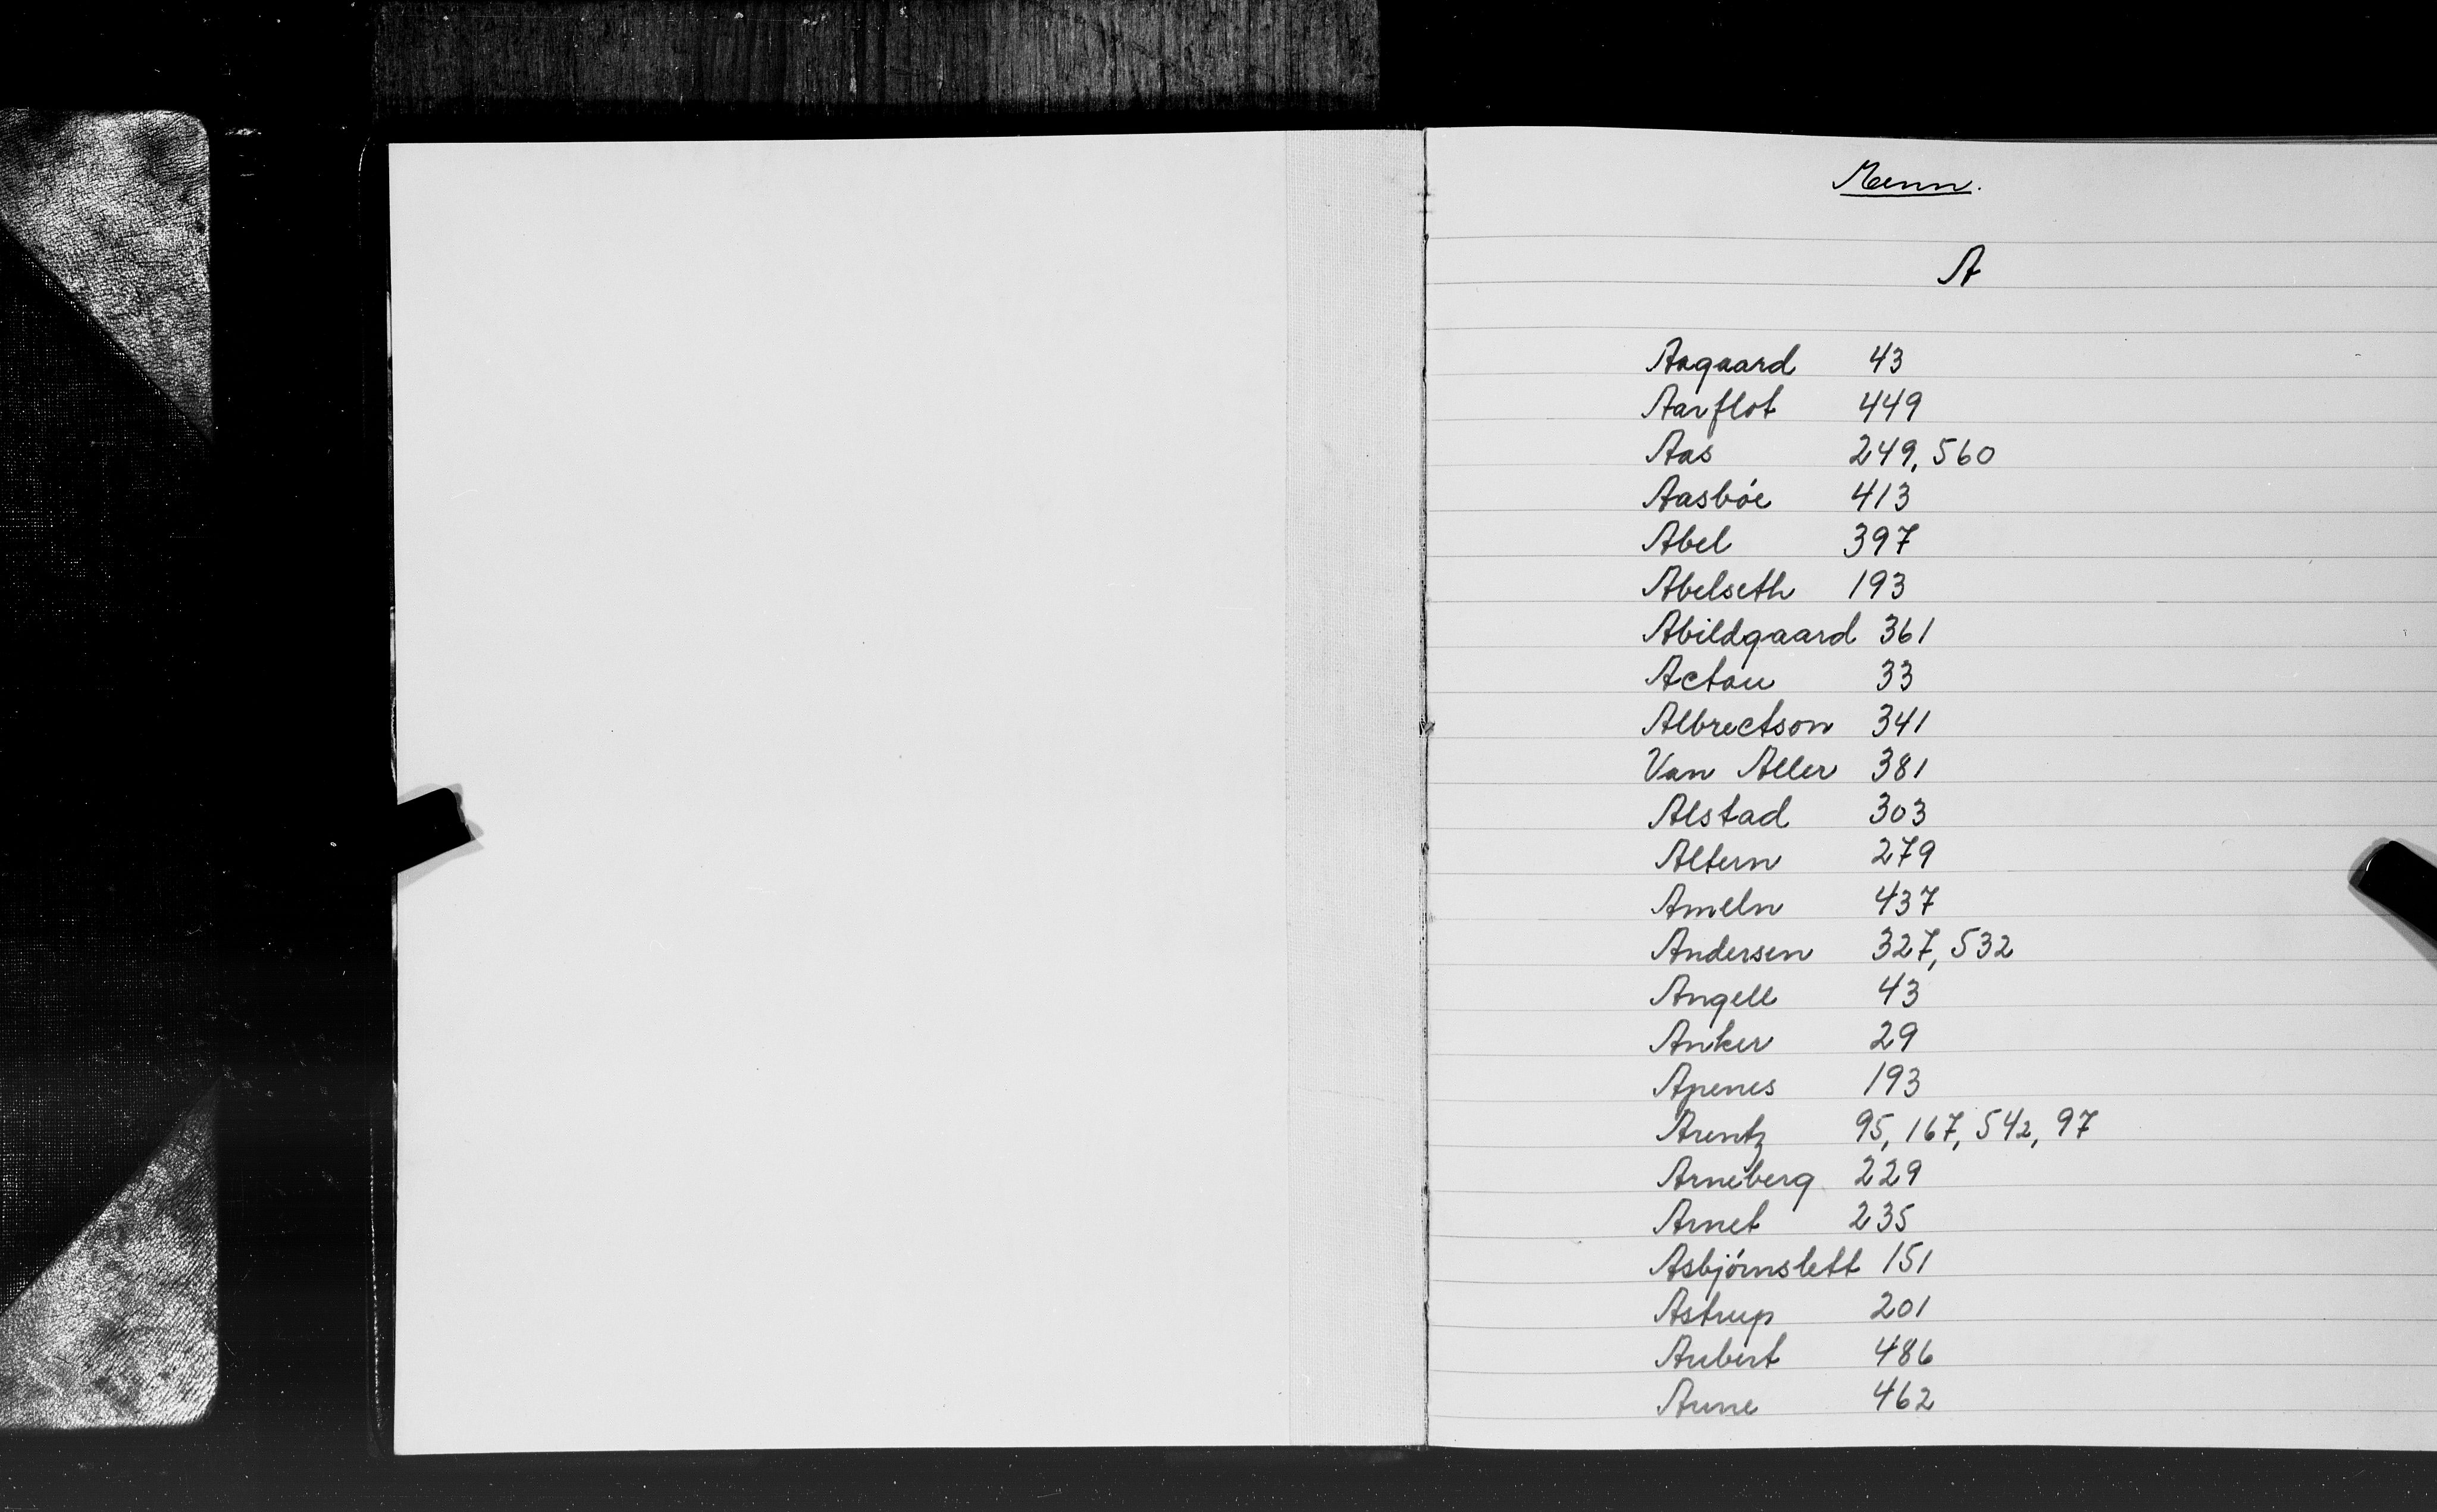 Menn.
A
Aagaard 43
Aarflot 449
Aas 249, 560
Aasbóe 413
Abel 397
Abelseth 193
Abildgaard 361
Acton 33
Albrectson 341
Van Aller 381
Alstad 303
Altern 279
Ameln 437
Andersen 327, 532
Angell 43
Anker 29
Apenes 193
Arentz 95, 167, 542, 97
Arneberg 229
Arnet 235
Asbjórnslett 151
Astrup 201
Aubert 486
Aune 462